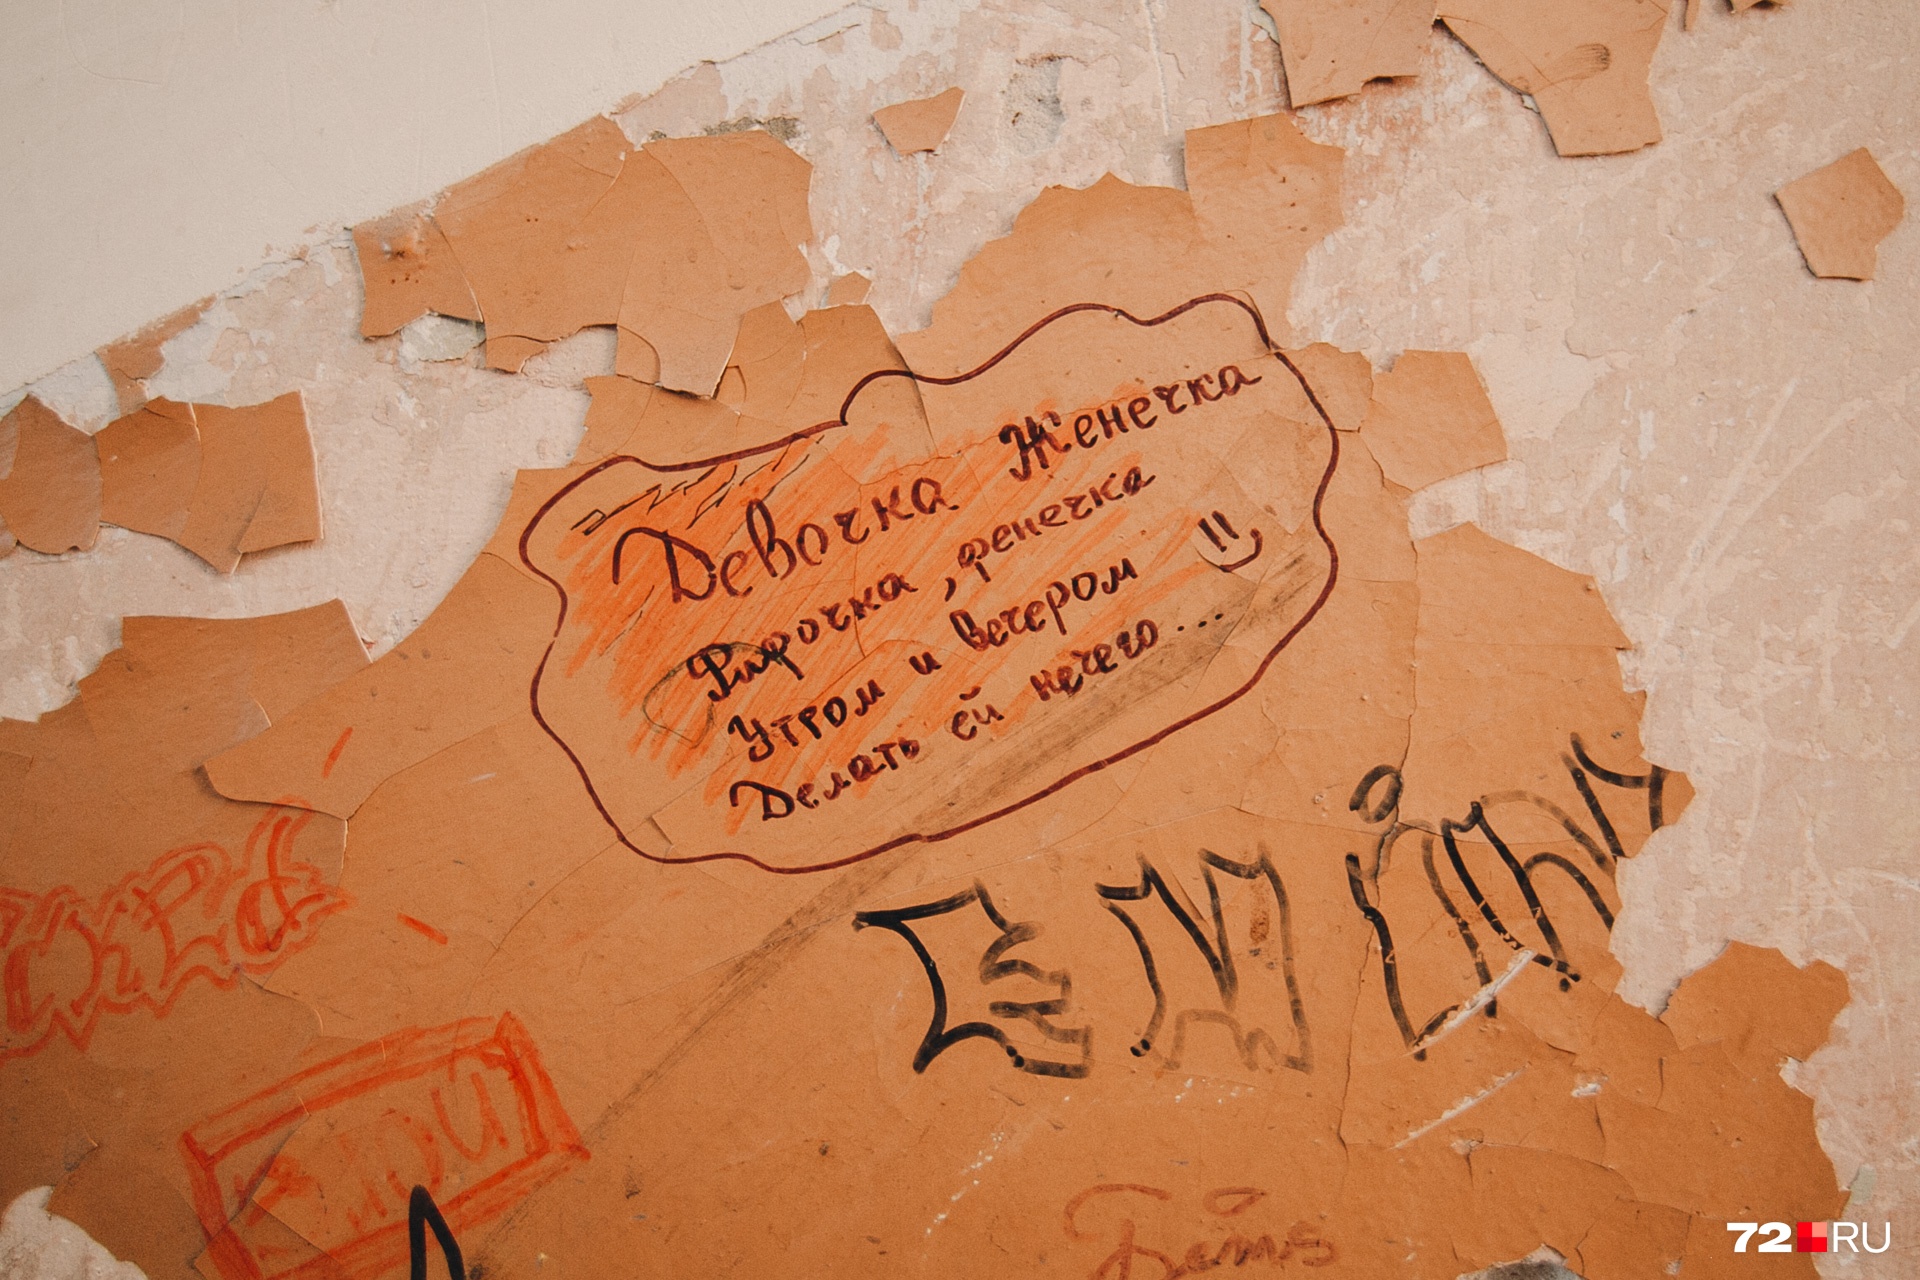 Девочка Женечка
Рифочка, фенечка
Утром и вечером !!
Делать ей нечего...
Батя
72.RU